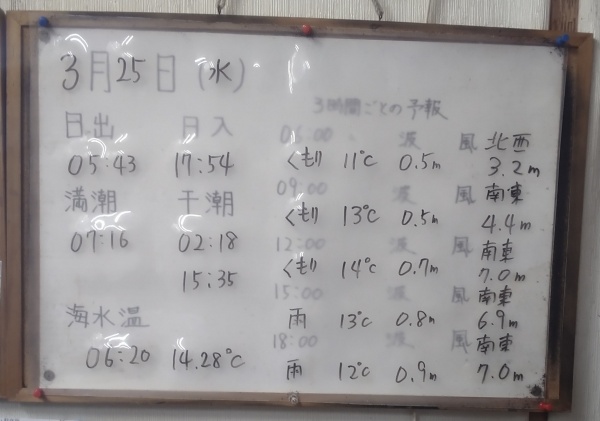 3月25日(水)
3時間ごとの予報
日出 日入
05:43 17:54
満潮 干潮
07:16 02:18
15:35
海水温
06:20 14.28℃
06:00 波 風 北西
くもり 11℃ 0.5m 3.2m
09:00 波 風 南東
くもり 13℃ 0.5m 4.4m
12:00 波 風 南東
くもり 14℃ 0.7m 7.0m
15:00 波 風 南東
雨 13℃ 0.8m 6.9m
18:00 波 風 南東
雨 12℃ 0.9m 7.0m